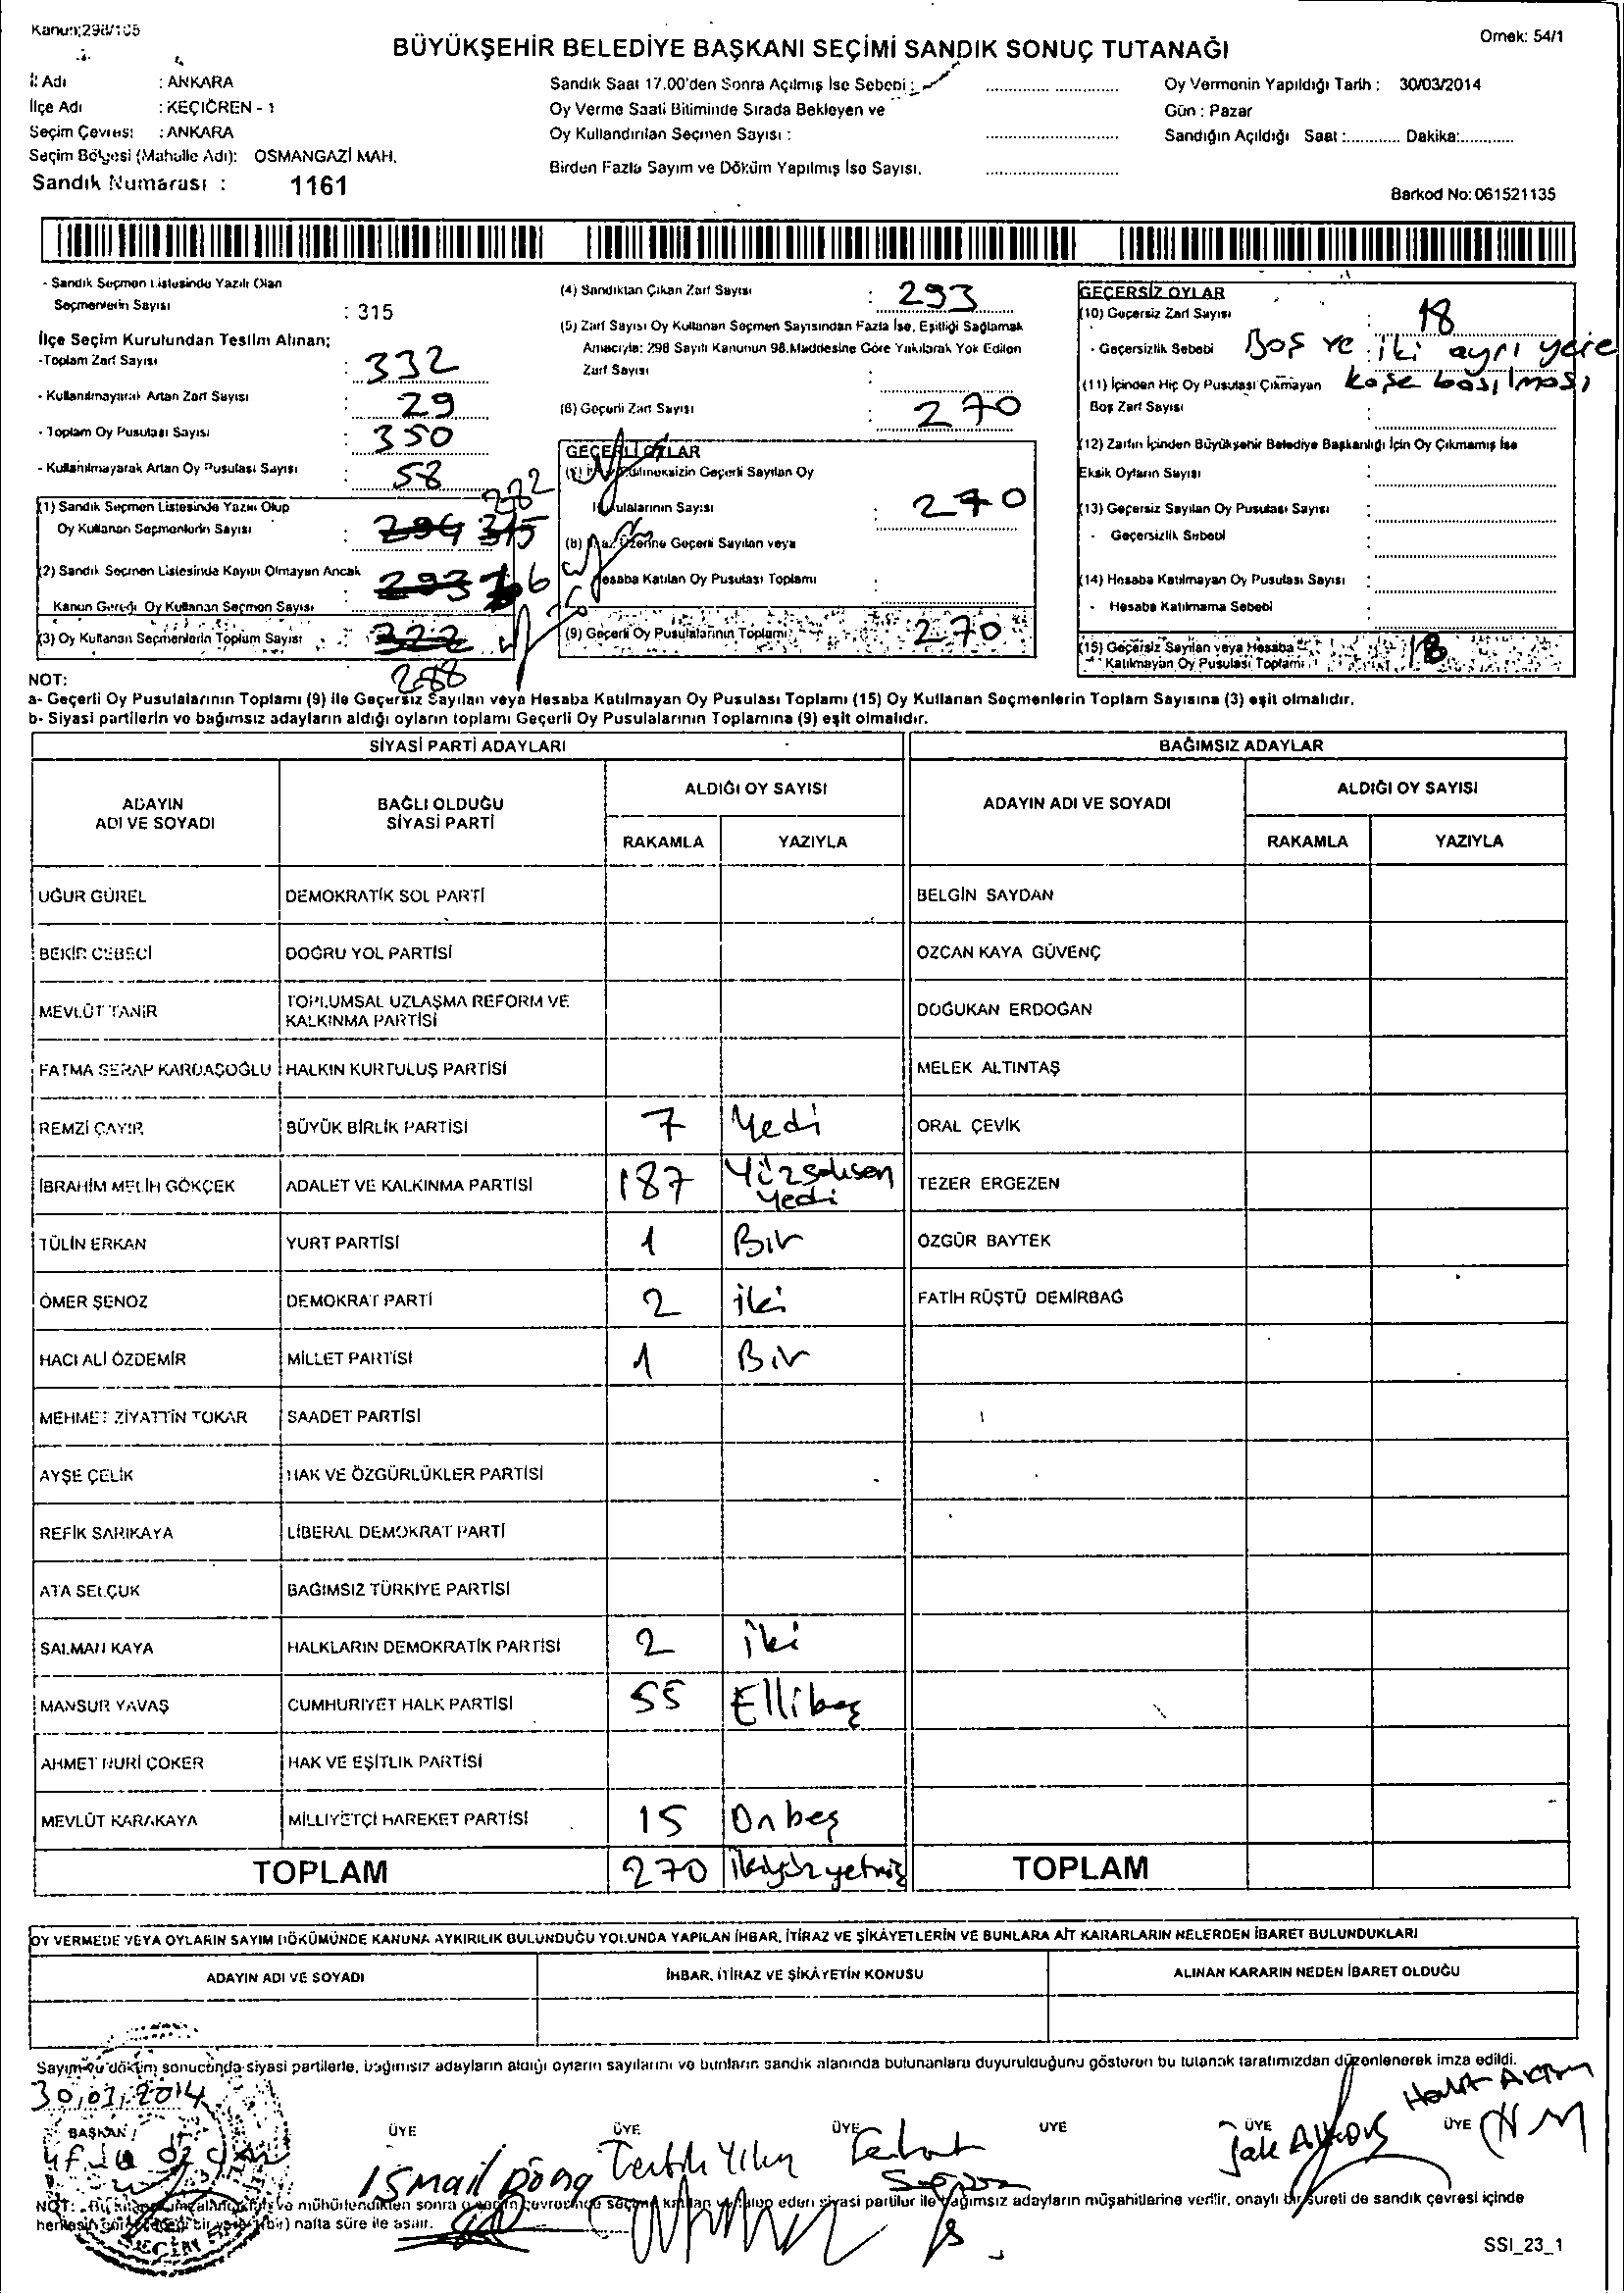 Kanun;298/105
BÜYÜKŞEHİR BELEDİYE BAŞKANI SEÇİMİ SANDIK SONUÇ TUTANAĞI
Örnek: 54/1
İl Adı : ANKARA
İlçe Adı : KEÇİÖREN - 1
Seçim Çevresi : ANKARA
Seçim Bölgesi (Mahalle Adı): OSMANGAZİ MAH.
Sandık Numarası : 1161
Sandık Saat 17.00'den Sonra Açılmış İse Sebebi :
Oy Verme Saati Bitiminde Sırada Bekleyen ve
Oy Kullandırılan Seçmen Sayısı :
Birden Fazla Sayım ve Döküm Yapılmış İse Sayısı.
Oy Vermenin Yapıldığı Tarih : 30/03/2014
Gün : Pazar
Sandığın Açıldığı Saat :............ Dakika:............
Barkod No: 061521135
- Sandık Seçmen Listesinde Yazılı Olan
Seçmenlerin Sayısı : 315
İlçe Seçim Kurulundan Teslim Alınan;
-Toplam Zarf Sayısı : 332
- Kullanılmayarak Artan Zarf Sayısı : 29
- Toplam Oy Pusulası Sayısı : 350
- Kullanılmayarak Artan Oy Pusulası Sayısı : 58
(1) Sandık Seçmen Listesinde Yazılı Olup 282
Oy Kullanan Seçmenlerin Sayısı : 294 315
(2) Sandık Seçmen Listesinde Kayıtlı Olmayan Ancak
Kanun Gereği Oy Kullanan Seçmen Sayısı : 293 6
(3) Oy Kullanan Seçmenlerin Toplam Sayısı : 322
288
(4) Sandıktan Çıkan Zarf Sayısı : 293
(5) Zarf Sayısı Oy Kullanan Seçmen Sayısından Fazla İse, Eşitliği Sağlamak
Amacıyla; 298 Sayılı Kanunun 98.Maddesine Göre Yakılarak Yok Edilen
Zarf Sayısı :
(6) Geçerli Zarf Sayısı : 270
GEÇERLİ OYLAR
Geçerli Sayılan Oy
Pusulalarının Sayısı : 270
(8) İtiraz Üzerine Geçerli Sayılan veya
Hesaba Katılan Oy Pusulası Toplamı :
(9) Geçerli Oy Pusulalarının Toplamı : 270
GEÇERSİZ OYLAR
(10) Geçersiz Zarf Sayısı : 18
- Geçersizlik Sebebi : Boş ve iki ayrı yere
kaşe basılması
(11) İçinden Hiç Oy Pusulası Çıkmayan
Boş Zarf Sayısı :
(12) Zarfın İçinden Büyükşehir Belediye Başkanlığı İçin Oy Çıkmamış İse
Eksik Oyların Sayısı :
(13) Geçersiz Sayılan Oy Pusulası Sayısı :
- Geçersizlik Sebebi :
(14) Hesaba Katılmayan Oy Pusulası Sayısı :
- Hesaba Katılmama Sebebi :
(15) Geçersiz Sayılan veya Hesaba
Katılmayan Oy Pusulası Toplamı : 18
NOT:
a- Geçerli Oy Pusulalarının Toplamı (9) ile Geçersiz Sayılan veya Hesaba Katılmayan Oy Pusulası Toplamı (15) Oy Kullanan Seçmenlerin Toplam Sayısına (3) eşit olmalıdır.
b- Siyasi partilerin ve bağımsız adayların aldığı oyların toplamı Geçerli Oy Pusulalarının Toplamına (9) eşit olmalıdır.
SİYASİ PARTİ ADAYLARI BAĞIMSIZ ADAYLAR
ADAYIN ADI VE SOYADI BAĞLI OLDUĞU SİYASİ PARTİ ALDIĞI OY SAYISI ADAYIN ADI VE SOYADI ALDIĞI OY SAYISI
RAKAMLA YAZIYLA RAKAMLA YAZIYLA
UĞUR GÜREL DEMOKRATİK SOL PARTİ BELGİN SAYDAN
BEKİR CEBECİ DOĞRU YOL PARTİSİ ÖZCAN KAYA GÜVENÇ
MEVLÜT TANIR TOPLUMSAL UZLAŞMA REFORM VE KALKINMA PARTİSİ DOĞUKAN ERDOĞAN
FATMA SERAP KARDAŞOĞLU HALKIN KURTULUŞ PARTİSİ MELEK ALTINTAŞ
REMZİ ÇAYIR BÜYÜK BİRLİK PARTİSİ 7 Yedi ORAL ÇEVİK
İBRAHİM MELİH GÖKÇEK ADALET VE KALKINMA PARTİSİ 187 Yüzseksen Yedi TEZER ERGEZEN
TÜLİN ERKAN YURT PARTİSİ 1 Bir ÖZGÜR BAYTEK
ÖMER ŞENÖZ DEMOKRAT PARTİ 2 iki FATİH RÜŞTÜ DEMİRBAĞ
HACI ALİ ÖZDEMİR MİLLET PARTİSİ 1 Bir
MEHMET ZİYATTİN TOKAR SAADET PARTİSİ
AYŞE ÇELİK HAK VE ÖZGÜRLÜKLER PARTİSİ
REFİK SARIKAYA LİBERAL DEMOKRAT PARTİ
ATA SELÇUK BAĞIMSIZ TÜRKİYE PARTİSİ
SALMAN KAYA HALKLARIN DEMOKRATİK PARTİSİ 2 iki
MANSUR YAVAŞ CUMHURİYET HALK PARTİSİ 55 Ellibeş
AHMET NURİ ÇOKER HAK VE EŞİTLİK PARTİSİ
MEVLÜT KARAKAYA MİLLİYETÇİ HAREKET PARTİSİ 15 Onbeş
TOPLAM 270 ikiyüzyetmiş TOPLAM
OY VERMEDE VEYA OYLARIN SAYIM DÖKÜMÜNDE KANUNA AYKIRILIK BULUNDUĞU YOLUNDA YAPILAN İHBAR, İTİRAZ VE ŞİKÂYETLERİN VE BUNLARA AİT KARARLARIN NELERDEN İBARET BULUNDUKLARI
ADAYIN ADI VE SOYADI İHBAR, İTİRAZ VE ŞİKÂYETİN KONUSU ALINAN KARARIN NEDEN İBARET OLDUĞU
Sayım ve döküm sonucunda siyasi partilerle, bağımsız adayların aldığı oyların sayılarını ve bunların sandık alanında bulunanlara duyurulduğunu gösteren bu tutanak tarafımızdan düzenlenerek imza edildi.
30.03.2014
BAŞKAN ÜYE ÜYE ÜYE ÜYE ÜYE ÜYE
İsmail
NOT: mühürlendikten sonra siyasi partiler ile bağımsız adayların müşahitlerine verilir, onaylı bir sureti de sandık çevresi içinde
(bir) hafta süre ile asılır.
SSI_23_1